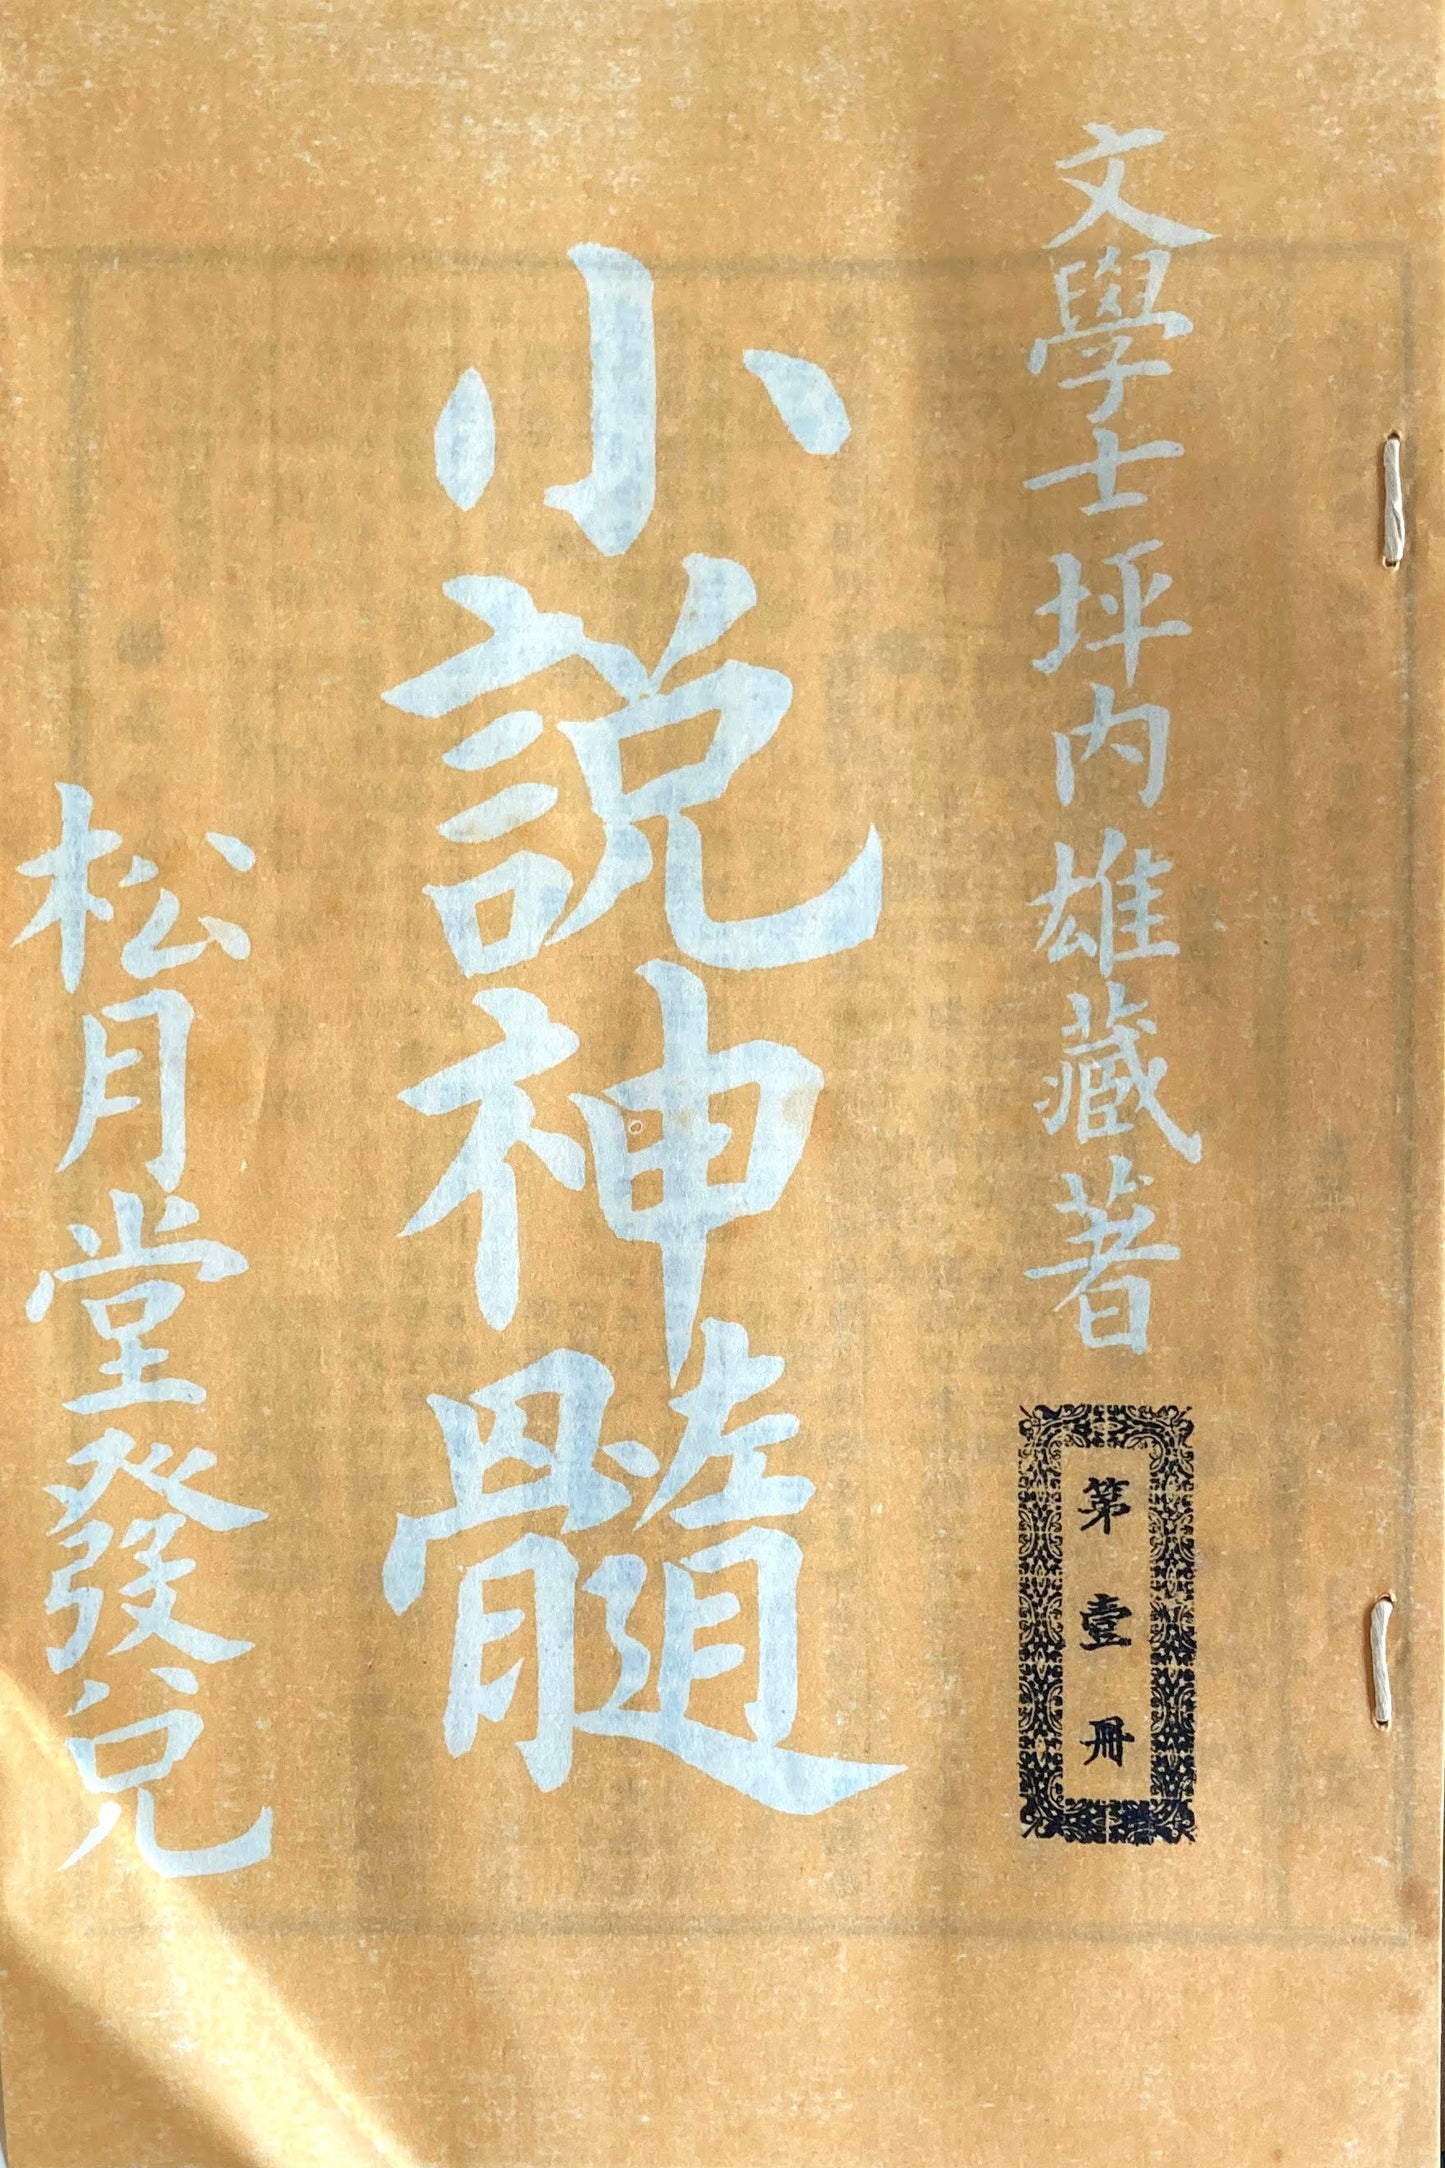 文學士坪内雄藏著
第壹册
小說神髓
松月堂發兌